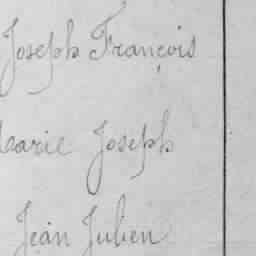 Joseph François
Marie Joseph
Jean Julien